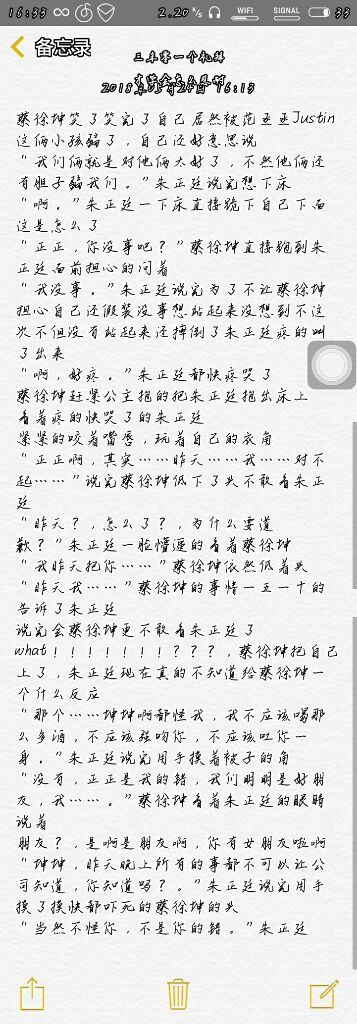 16:33
2.20
K/s
WIFI
SIGNAL
33
备忘录
三年零一个礼拜
16:13
蔡徐坤笑了笑完了自己居然被范丞丞Justin
这俩小孩骗了，自己还好意思说
“我们俩就是对他俩太好了，不然他俩还
有胆子骗我们。”朱正廷说完想下床
“啊。”朱正廷一下床直接跪下自己下面
这是怎么了
“正正，你没事吧？”蔡徐坤直接跑到朱
正廷面前担心的问着
“我没事。”朱正廷说完为了不让蔡徐坤
担心自己还假装没事想站起来没想到不这
次不但没有站起来还摔倒了朱正廷疼的叫
了出来
“啊，好疼。”朱正廷都快疼哭了
蔡徐坤赶紧公主抱的把朱正廷抱出床上
看着疼的快哭了的朱正廷
紧紧的咬着嘴唇，玩着自己的衣角
“正正啊，其实……昨天……我……对不
起……”说完蔡徐坤低下了头不敢看朱正
廷
“昨天？，怎么了？，为什么要道
歉？”朱正廷一脸懵逼的看着蔡徐坤
“我昨天把你……”蔡徐坤依然低着头
“昨天我……”蔡徐坤的事情一五一十的
告诉了朱正廷
说完会蔡徐坤更不敢看朱正廷了
what！！！！！！！？？？，蔡徐坤把自己
上了，朱正廷现在真的不知道给蔡徐坤一
个什么反应
“那个……坤坤啊都怪我，我不应该喝那
么多酒，不应该强吻你，不应该吐你一
身。”朱正廷说完用手摸着被子的角
“没有，正正是我的错，我们明明是好朋
友，我……。”蔡徐坤看着朱正廷的眼睛
说着
朋友？，是啊是朋友啊，你有女朋友啦啊
“坤坤，昨天晚上所有的事都不可以让公
司知道，你知道吗？。”朱正廷说完用手
摸了摸快都吓死的蔡徐坤的头
“当然不怪你，不是你的错。”朱正廷